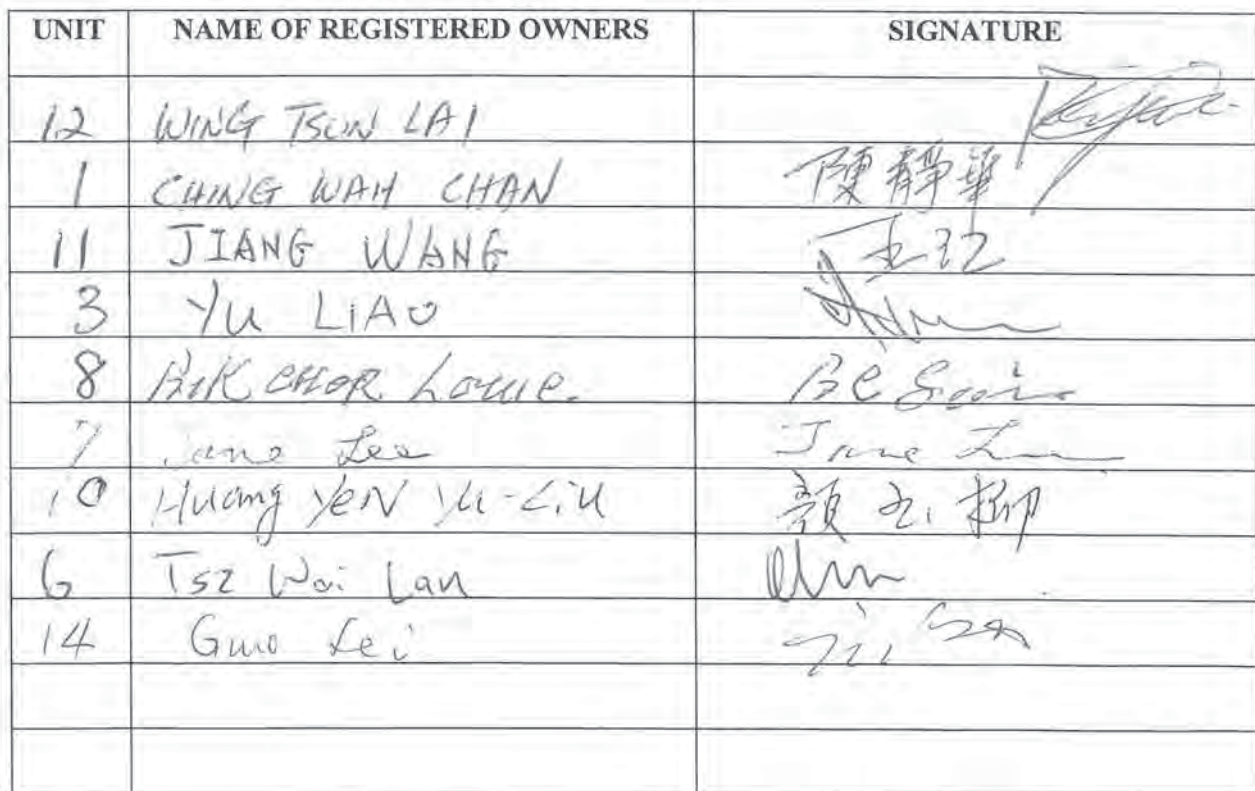 UNIT NAME OF REGISTERED OWNERS SIGNATURE
12 WING TSUN LAI
1 CHING WAH CHAN 陳靜華
11 JIANG WANG 王江
3 YU LIAO
8 BIK CHOR LOUIE.
7 Jane Lee Jane Lee
10 Huang YEN YU-LiU 顏玉柳
6 Tsz Wai Lau
14 Guo Lei